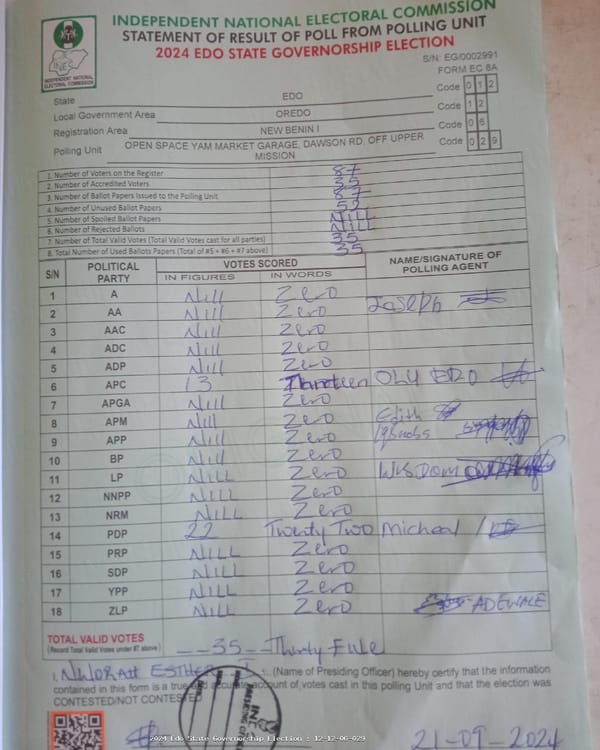 INDEPENDENT NATIONAL ELECTORAL COMMISSION
STATEMENT OF RESULT OF POLL FROM POLLING UNIT
2024 EDO STATE GOVERNORSHIP ELECTION
INEC
INDEPENDENT NATIONAL ELECTORAL COMMISSION
S/N: EG/0002991
FORM EC 8A
State EDO Code 0 1 2
Local Government Area OREDO Code 1 2
Registration Area NEW BENIN I Code 0 6
Polling Unit OPEN SPACE YAM MARKET GARAGE, DAWSON RD, OFF UPPER MISSION Code 0 2 9
1. Number of Voters on the Register 87
2. Number of Accredited Voters 35
3. Number of Ballot Papers Issued to the Polling Unit 87
4. Number of Unused Ballot Papers 52
5. Number of Spoiled Ballot Papers NILL
6. Number of Rejected Ballots NILL
7. Number of Total Valid Votes (Total Valid Votes cast for all parties) 35
8. Total Number of Used Ballots Papers (Total of #5 + #6 + #7 above) 35
S/N POLITICAL PARTY VOTES SCORED NAME/SIGNATURE OF POLLING AGENT
IN FIGURES IN WORDS
1 A Nill Zero
2 AA Nill Zero Joseph
3 AAC Nill Zero
4 ADC Nill Zero
5 ADP Nill Zero
6 APC 13 OLU EDO
7 APGA Nill Zero
8 APM Nill Zero Edith
9 APP Nill Zero
10 BP Nill Zero
11 LP NILL Zero WISDOM
12 NNPP NILL Zero
13 NRM NILL Zero
14 PDP 22 Twenty Two Micheal
15 PRP NILL Zero
16 SDP NILL Zero
17 YPP NILL Zero
18 ZLP NILL Zero ADEWALE
TOTAL VALID VOTES
(Record Total Valid Votes under #7 above) --35--
I, NWORAH ESTHER (Name of Presiding Officer) hereby certify that the information
contained in this form is a true and accurate account of votes cast in this polling Unit and that the election was
CONTESTED/NOT CONTESTED
2024 Edo State Governorship Election : 12-12-06-029
21-09-2024